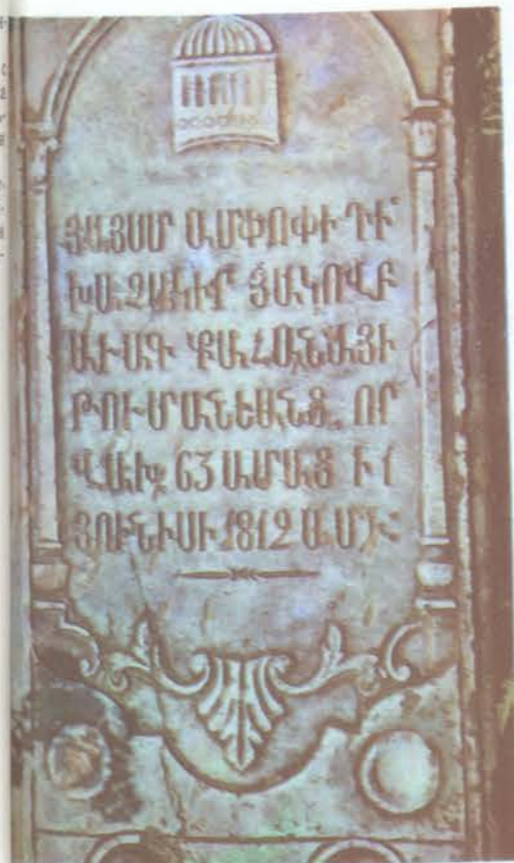 ՅԱՅՍՄ ԱՄՓՈՓԻ ՏԻ՟
ԽԱՉԱԿԻՐ ՅԱԿՈՎԲ
ԱՒԱԳ ՔԱՀԱՆԱՅԻ
ԹՈՒՄԱՆԵԱՆՑ, ՈՐ
63 ԱՄԱՑ Ի 1
ՅՈՒՆԻՍԻ 1812 ԱՄԻ: